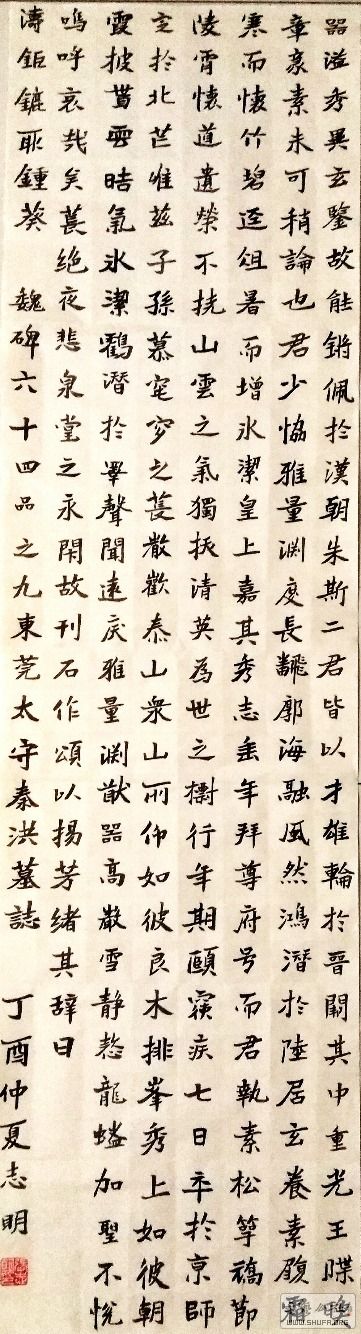 器溢秀異玄鑒故能鏘佩於漢朝朱斯二君皆以才雄輪於晉闕其中重光王牒
章豪素未可稍論也君少協雅量淵度長飜廓海融風然鴻潛於陸居玄養素頤霜晚
寒而懷竹碧逕俎暑而增氷潔皇上嘉其秀志垂年拜尊府号而君執素松筠德節
陵霄懷道遺榮不撓山雲之氣獨挾清英為世之櫥行年期頤寢疾七日卒於京師
㝎於北芒惟茲子孫慕窀穸之萇散歡泰山衆山所仰如彼良木排峯秀上如彼朝
霞披蓂雲晧氣氷潔鸖潛於皋聲聞遠戾雅量淵猷器高嚴雪静憗龍蟠加聖不悅
嗚呼哀哉矣萇絕夜悲泉堂之永閇故刊石作頌以揚芳緒其辞曰
濤鉅鑣耴鍾葵 魏碑六十四品之九東莞太守秦洪墓誌 丁酉仲夏志明
WWW.SHUFA.ORG